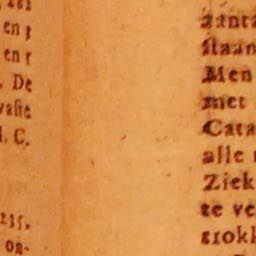 en
en
De
vaste
l. C.
235.
on-
aanta
staan
Men
met
Cata
alle
Ziek
te ve
trokk